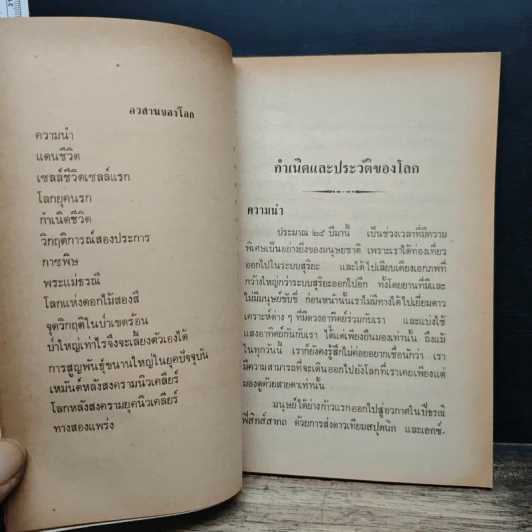 อวสานของโลก
ความนำ
แดนชีวิต
เซลล์ชีวิตเซลล์แรก
โลกยุคนรก
กำเนิดชีวิต
วิกฤติการณ์สองประการ
กาซพิษ
พระแม่ธรณี
โลกแห่งดอกไม้สองสี
จุดวิกฤติในป่าเขตร้อน
ป่าใหญ่เท่าไรจึงจะเลี้ยงตัวเองได้
การสูญพันธุ์ขนานใหญ่ในยุคปัจจุบัน
เหมันต์หลังสงครามนิวเคลียร์
โลกหลังสงครามยุคนิวเคลียร์
ทางสองแพร่ง
กำเนิดและประวัติของโลก
ความนำ
ประมาณ ๒๕ ปีมานี้ เป็นช่วงเวลาที่มีความ
พิเศษเป็นอย่างยิ่งของมนุษยชาติ เพราะเราได้ท่องเที่ยว
ออกไปในระบบสุริยะ และได้ไปเลียบเคียงเอกภพที่
กว้างใหญ่กว่าระบบสุริยะออกไปอีก ทั้งโดยยานที่มีและ
ไม่มีมนุษย์ขับขี่ ก่อนหน้านั้นเราไม่มีทางได้ไปเยี่ยมดาว
เคราะห์ต่าง ๆ ที่มีดวงอาทิตย์ร่วมกับเรา และแบ่งใช้
แสงอาทิตย์กันกับเรา ได้แต่เพียงยืนมองเท่านั้น ถึงแม้
ในทุกวันนี้ เราก็ยังคงรู้สึกไม่ค่อยอยากเชื่อนักว่า เรา
มีความสามารถที่จะเดินออกไปยังโลกที่เราเคยเพียงแต่
มองดูด้วยสายตาเท่านั้น
มนุษย์ได้ย่างก้าวแรกออกไปสู่อวกาศในปีธรณี
ฟิสิกส์สากล ด้วยการส่งดาวเทียมสปุตนิก และเอกซ์-